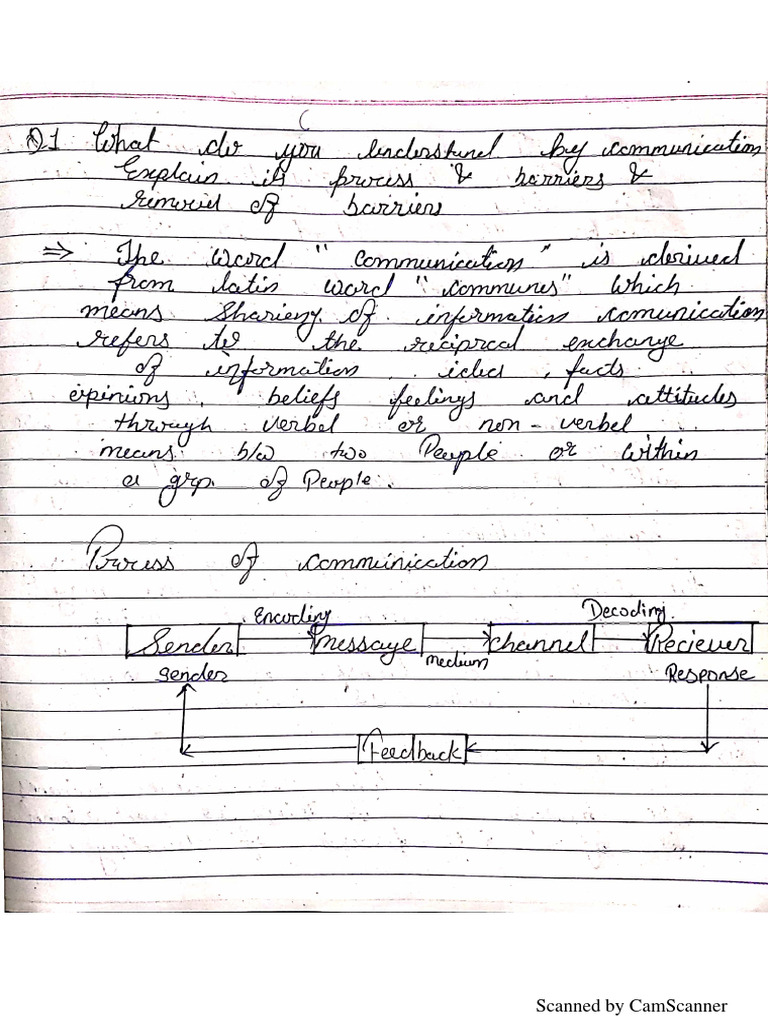 Q1 What do you understand by communication
Explain its process & barriers &
removel of barriers
⇒ The word "communication" is derived
from latin word "communes" which
means Sharieng of information comunication
refers to the reciprcal exchange
of information, idea, facts
opinions, beliefs feelings and attitudes
through verbal or non-verbal
means b/w two People or within
a grp. of People.
Process of communication
Encoding Decoding
Sender message channel Reciever
medium
Sender Response
Feedback
Scanned by CamScanner